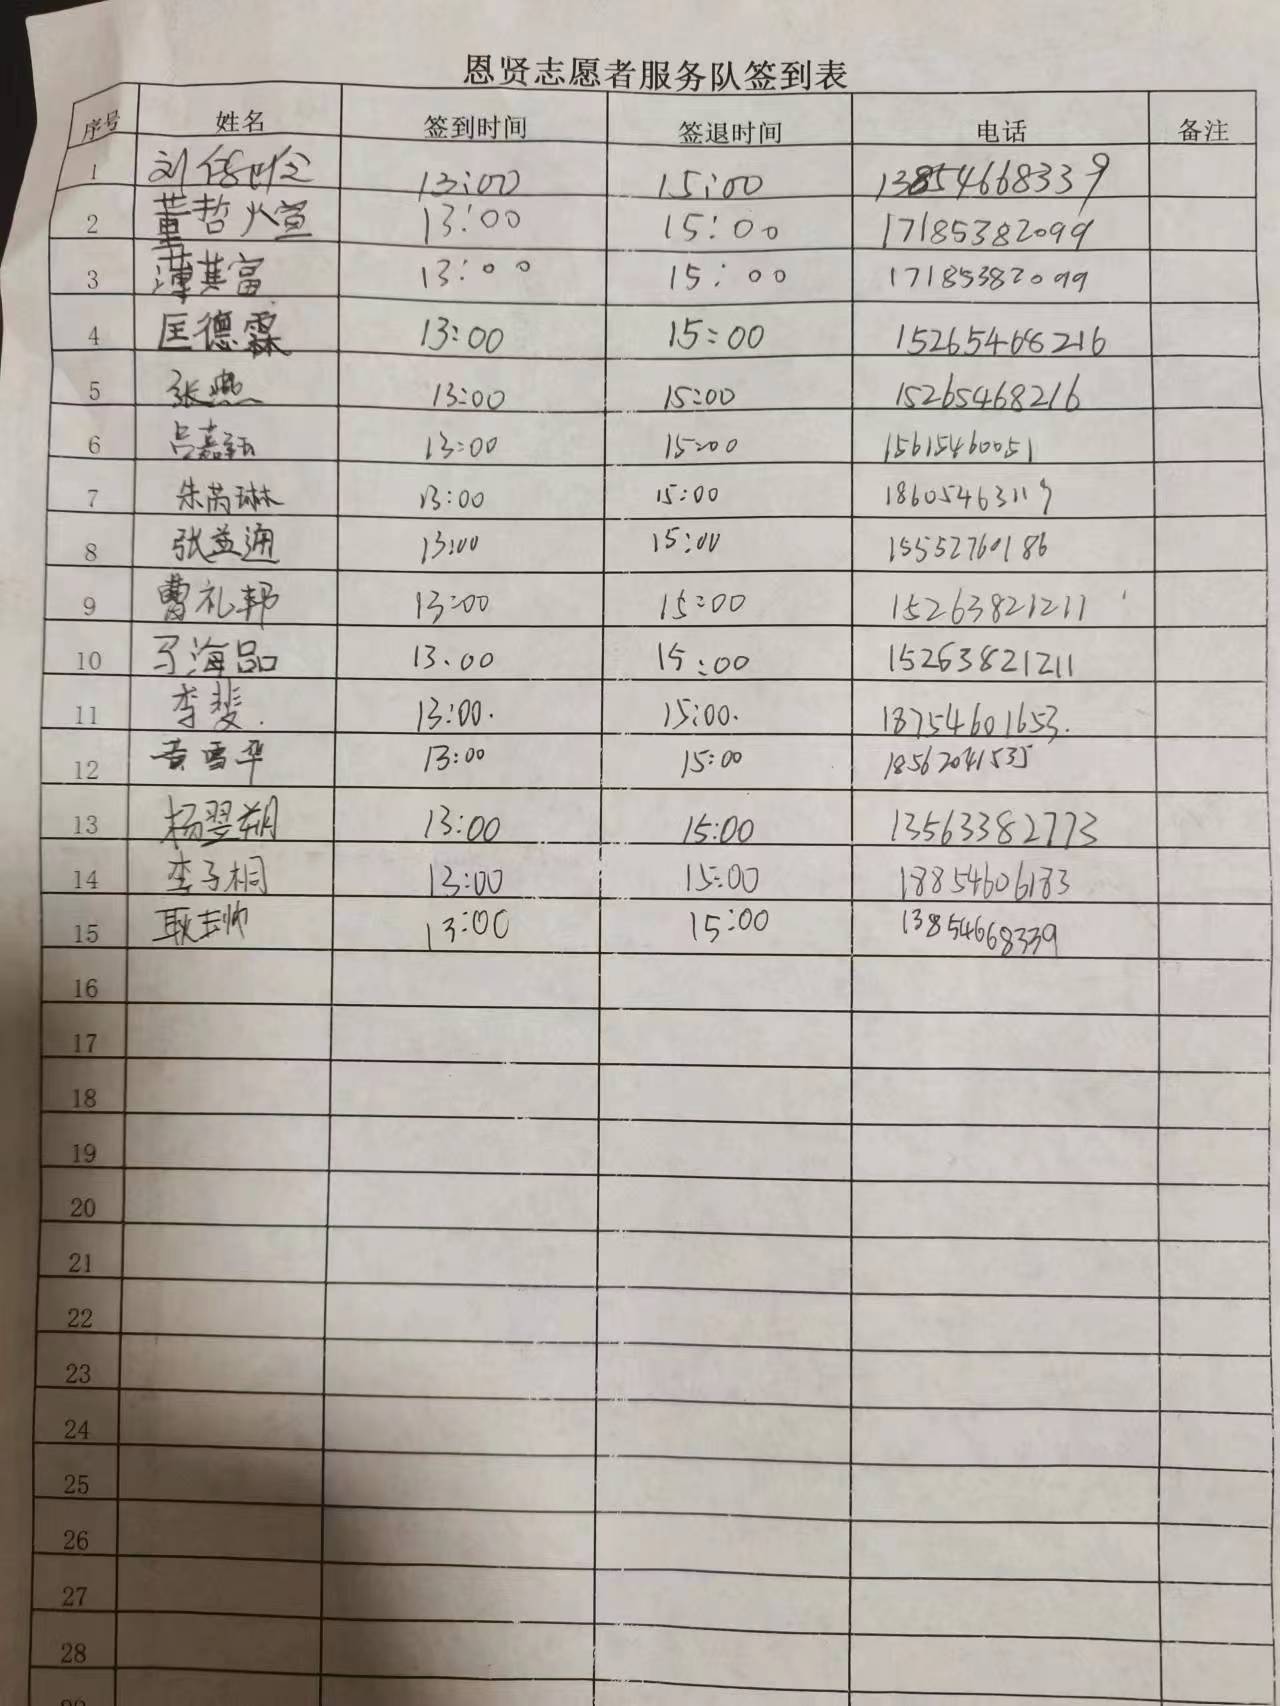 恩贤志愿者服务队签到表
序号 姓名 签到时间 签退时间 电话 备注
1 刘 13:00 15:00 13854668339
2 董哲 13:00 15:00 17185382099
3 薄其富 13:00 15:00 17185382099
4 匡德霖 13:00 15:00 15265468216
5 张燕 13:00 15:00 15265468216
6 吕嘉钰 13:00 15:00 15615460051
7 朱芮琳 13:00 15:00 18605463119
8 张益通 13:00 15:00 15552760186
9 曹礼郡 13:00 15:00 15263821211
10 海品 13.00 15:00 15263821211
11 李斐. 13:00. 15:00. 18754601653.
12 黄雪华 13:00 15:00 18562041535
13 杨翌朔 13:00 15:00 13563382773
14 李子桐 13:00 15:00 18854606183
15 耿帅 13:00 15:00 13854668339
16
17
18
19
20
21
22
23
24
25
26
27
28